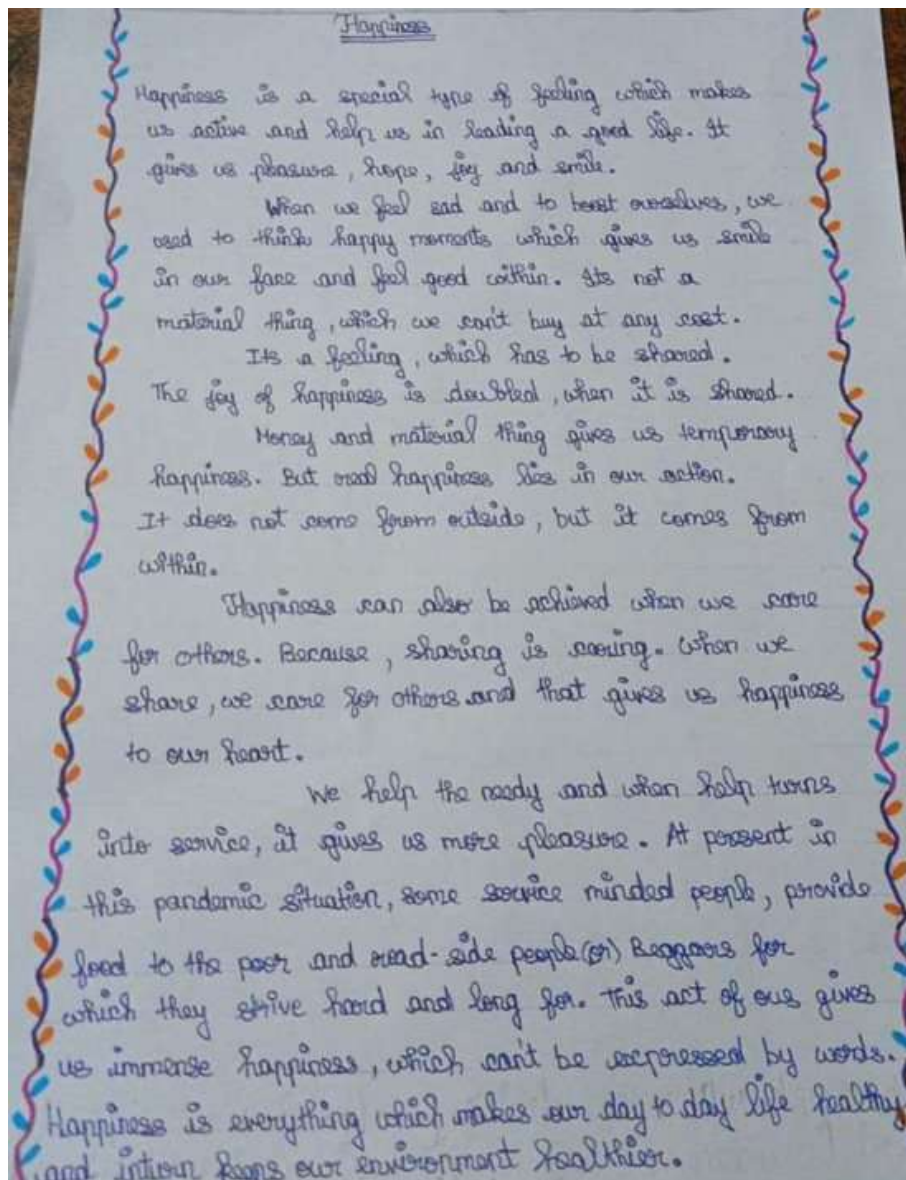 Happiness
Happiness is a special type of feeling which makes
us active and help us in leading a good life. It
gives us pleasure, hope, joy and smile.
When we feel sad and to boost ourselves, we
used to think happy moments which gives us smile
in our face and feel good within. Its not a
material thing, which we can't buy at any cost.
Its a feeling, which has to be shared.
The joy of happiness is doubled, when it is shared.
Money and material thing gives us temporary
happiness. But real happiness lies in our action.
It does not come from outside, but it comes from
within.
Happiness can also be achieved when we care
for others. Because, sharing is caring. When we
share, we care for others and that gives us happiness
to our heart.
We help the needy and when help turns
into service, it gives us more pleasure. At present in
this pandemic situation, some service minded people, provide
food to the poor and road-side people (or) Beggars for
which they strive hard and long for. This act of ous gives
us immense happiness, which can't be expressed by words.
Happiness is everything which makes our day to day life healthy
and inturn keeps our environment healthier.